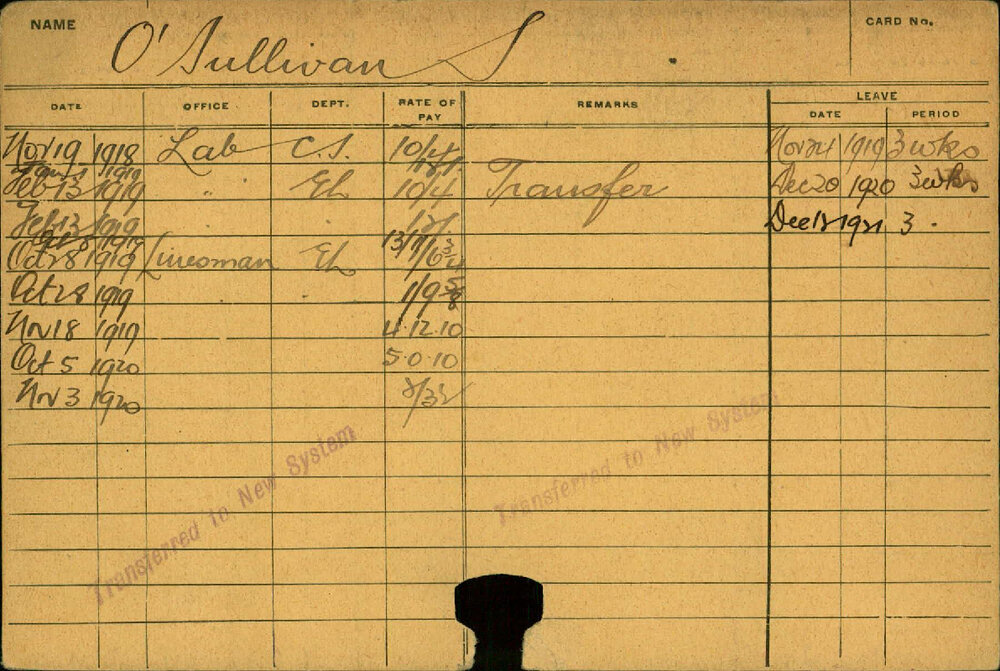 NAME O'Sullivan S CARD No.
DATE OFFICE DEPT. RATE OF PAY REMARKS LEAVE
DATE PERIOD
Nov 19 1918 Lab C.S. 10/4 Nov 24 1919 3 wks
1919
Feb 13 1919 " El 10/4 Transfer Dec 20 1920 3 wks
Feb 13 1919 Dec 12 1921 3
1919
Oct 28 1919 Linesman El
Oct 28 1919 1/9 5/8
Nov 18 1919 4.12.10
Oct 5 1920 5.0.10
Nov 3 1920
Transferred to New System
Transferred to New System